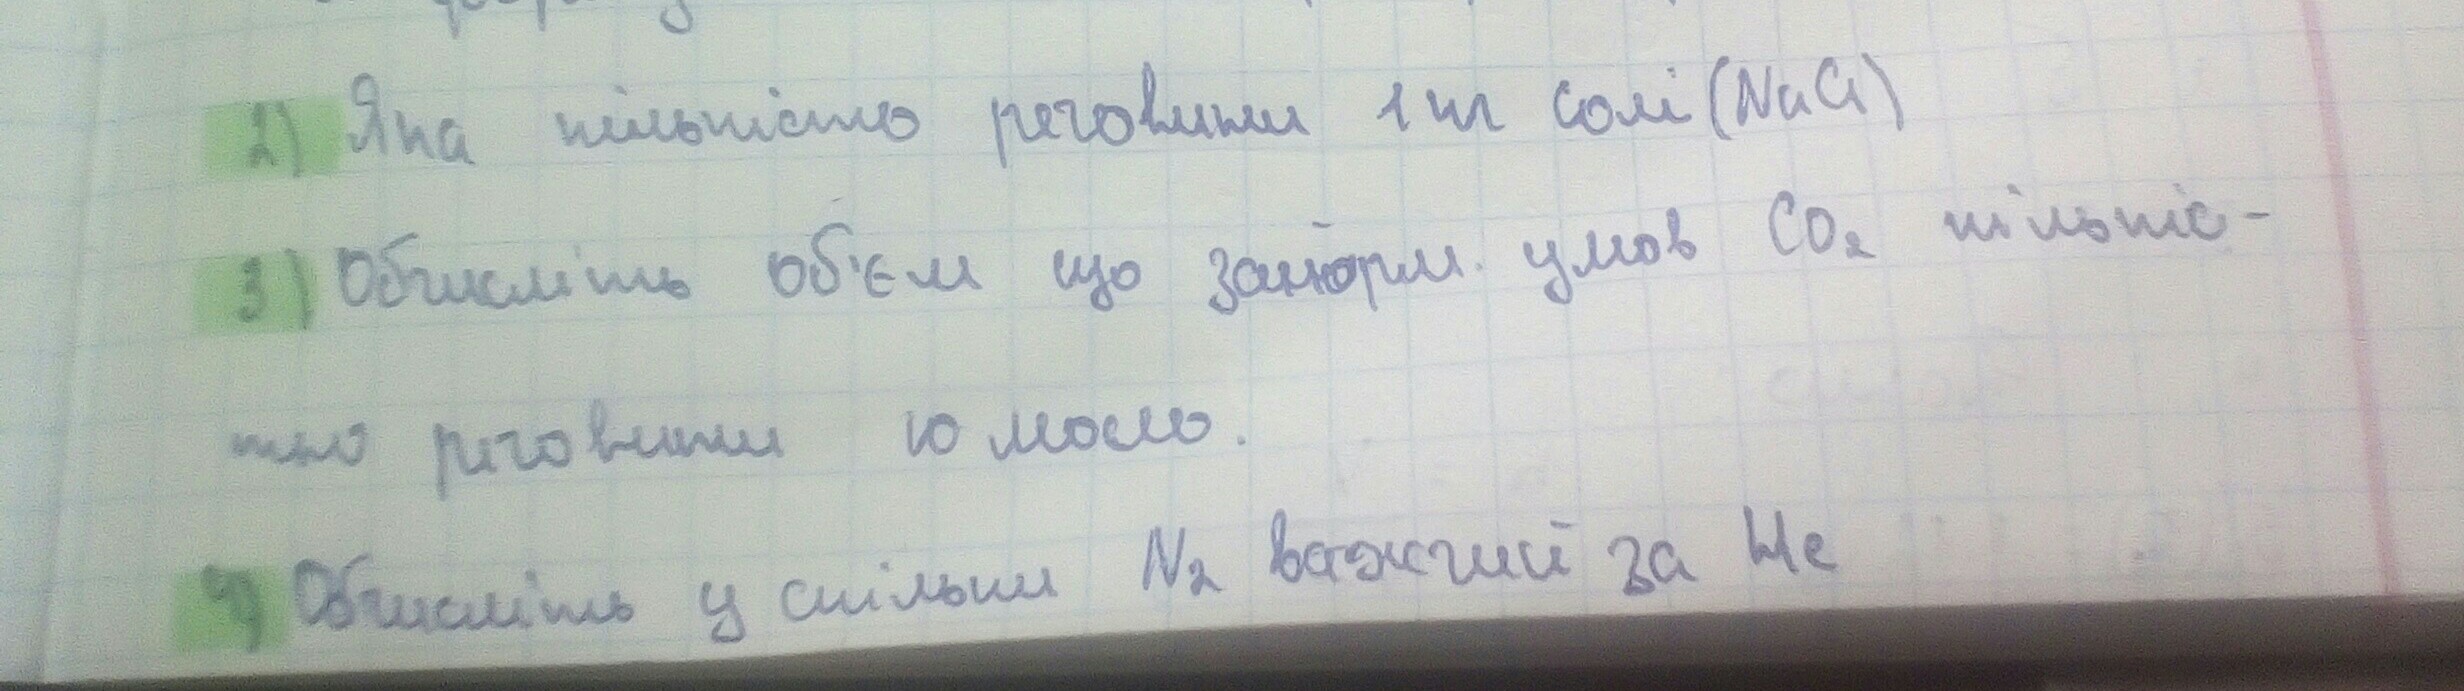 2) Яка кількістю речовини 1 кг солі (NaCl)
3) Обчисліть об'єм що за норм. умов CO₂ кількіс-
тю речовини 10 молю.
4) Обчисліть у скільки N₂ важчий за He